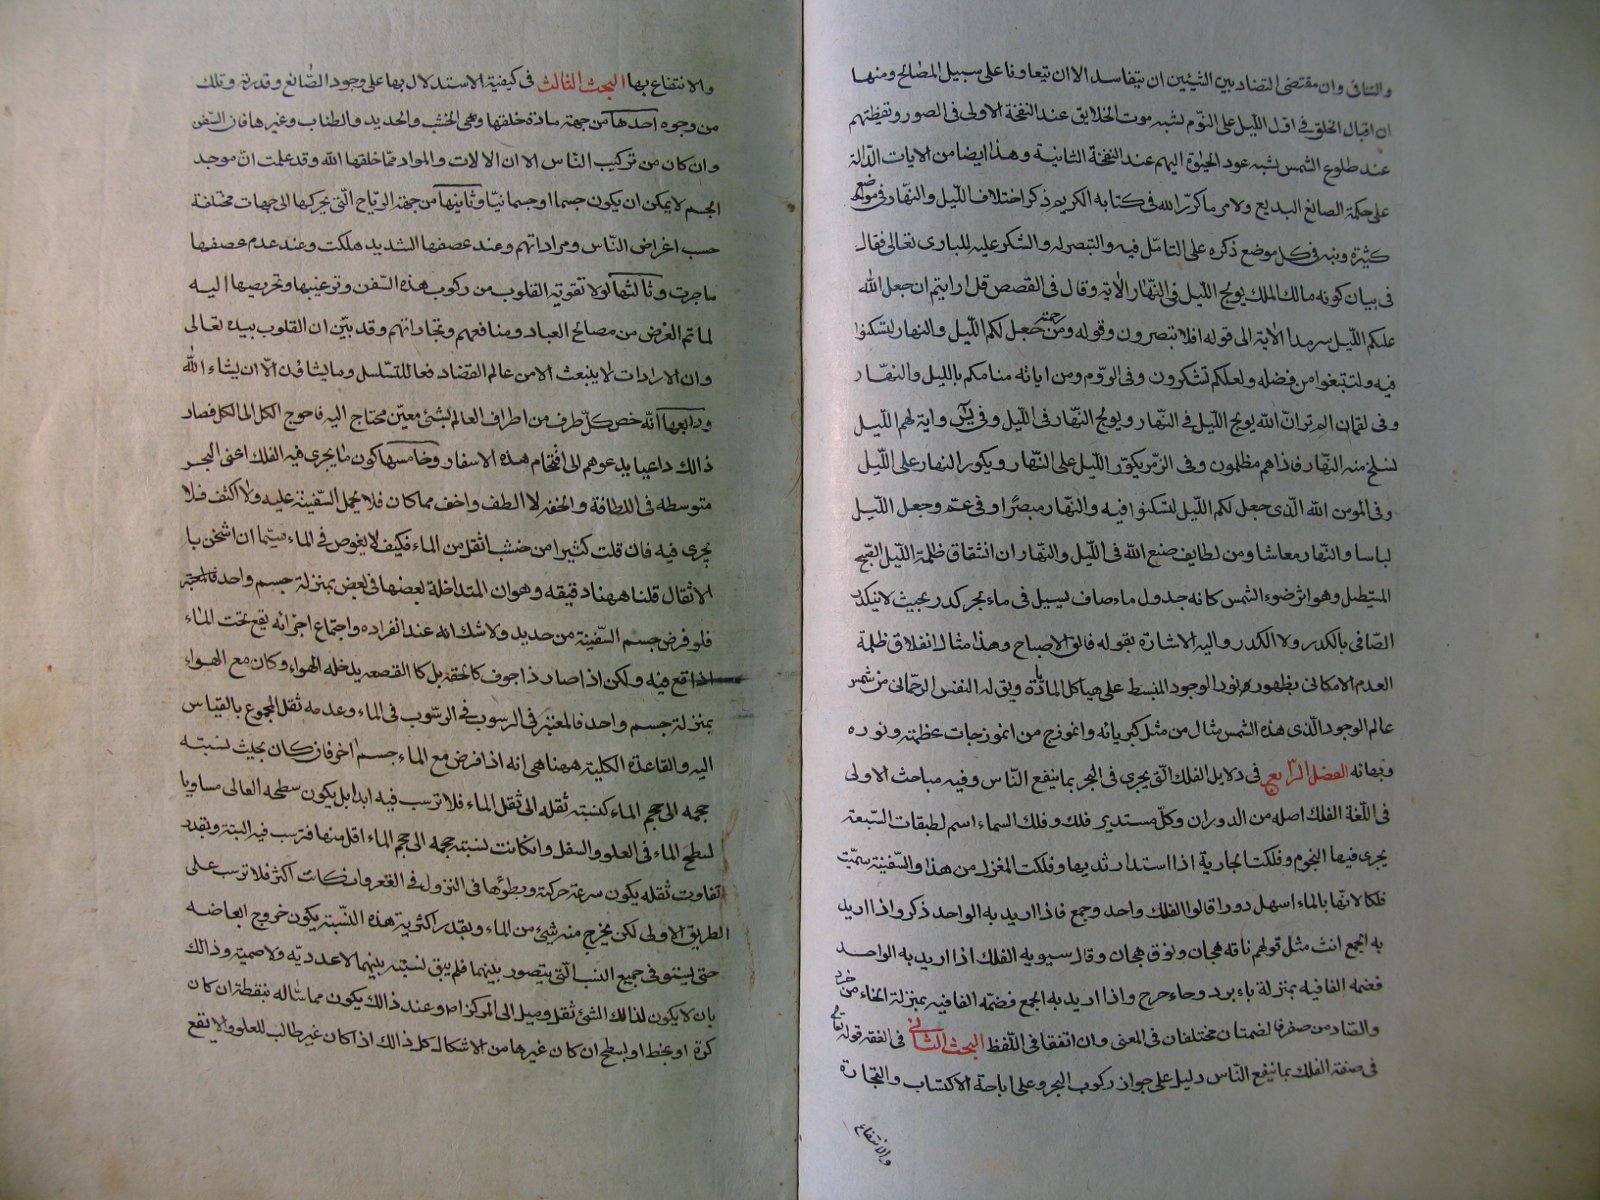 والتنافی وان مقتضی التضاد بین الشیئین ان یتفاسدا لا ان یتعاونا علی سبیل المصالح ومنها
ان اقبال الخلق فی اول اللیل علی النوم یشبه موت الخلایق عند النفخة الاولی فی الصور ویقظتهم
عند طلوع الشمس یشبه عود الحیوة الیهم عند النفخة الثانیة وهذا ایضا من الایات الدالة
علی حکمة الصانع البدیع ولامر ما کرر الله فی کتابه الکریم ذکر اختلاف اللیل والنهار فی مواضع
کثیرة ونبه فی کل موضع ذکره علی التامل فیه والتبصر له والشکر علیه للباری تعالی فقال
فی بیان کونه مالک الملک یولج اللیل فی النهار الایة وقال فی القصص قل ارایتم ان جعل الله
علیکم اللیل سرمدا الایة الی قوله افلا تبصرون وقوله ومن رحمته جعل لکم اللیل والنهار لتسکنوا
فیه ولتبتغوا من فضله ولعلکم تشکرون وفی الروم ومن ایاته منامکم باللیل والنهار
وفی لقمان الم تر ان الله یولج اللیل فی النهار ویولج النهار فی اللیل وفی یس وایة لهم اللیل
نسلخ منه النهار فاذا هم مظلمون وفی الزمر یکور اللیل علی النهار ویکور النهار علی اللیل
وفی المومن الله الذی جعل لکم اللیل لتسکنوا فیه والنهار مبصرا وفی عم وجعل اللیل
لباسا والنهار معاشا ومن لطایف صنع الله فی اللیل والنهار ان انشقاق ظلمة اللیل الصبح
المستطیل وهو اثر ضوء الشمس کانه جدول ماء صاف یسیل فی ماء بحر کدر بحیث لا یتکدر
الصافی بالکدر ولا الکدر والیه الاشارة بقوله فالق الاصباح وهذا مثال انفلاق ظلمة
العدم الامکانی بظهور نور الوجود المنبسط علی هیاکل الماهیات ویق له النفس الرحمانی من شمس
عالم الوجود الذی هذه الشمس مثال من مثل کبریائه وانموذج من انموذجات عظمته ونوره
وبهائه الفصل الرابع فی دلایل الفلک التی یجری فی البحر بما ینفع الناس وفیه مباحث الاولی
فی اللغة الفلک اصله من الدوران وکل مستدیر فلک وفلک السماء اسم لطبقات السبعة
یجری فیها النجوم وفلکت الجاریة اذا استدار ثدیها وفلکت المغزل من هذا والسفینة سمیت
فلکا لانها بالماء اسهل دورا قالوا الفلک واحد وجمع فاذا ارید به الواحد ذکر واذا ارید
به الجمع انث مثل قولهم ناقة هجان ونوق هجان وقال سیبویه الفلک اذا ارید به الواحد
فضمه الفا فیه بمنزلة باء برد وخاء خرج واذا ارید به الجمع فضمه الفا فیه بمنزلة الحاء من حمر
والصاد من صفر فالضمتان مختلفان فی المعنی وان اتفقا فی اللفظ البحث الثانی فی الفقه قوله تعالی
فی صفة الفلک بما ینفع الناس دلیل علی جواز رکوب البحر وعلی اباحة الاکتساب والتجارة
والانتفاع
والانتفاع بها البحث الثالث فی کیفیة الاستدلال بها علی وجود الصانع وقدرته وتلک
من وجوه احدها من جهة مادة خلقها وهی الخشب والحدید والطناب وغیرها فان السفن
وان کان من ترکیب الناس الا ان الالات والمواد مما خلقها الله وقد علمت ان موجد
الجسم لا یمکن ان یکون جسما او جسمانیا وثانیها من جهة الریاح التی یحرکها الی جهات مختلفة
حسب اغراض الناس ومراداتهم وعند عصفها الشدید هلکت وعند عدم عصفها
ما جرت وثالثها لولا تقویة القلوب من رکوب هذه السفن وترغیبها وتحریصها الیه
لما تم الغرض من مصالح العباد ومنافعهم وتجاراتهم وقد بین ان القلوب بیده تعالی
وان الارادات لا ینبعث الا من عالم القضاء دفعا للتسلسل وما یشاؤن الا ان یشاء الله
ورابعها انه خص کل طرف من اطراف العالم بشئ معین محتاج الیه فاحوج الکل الی الکل فصار
ذالک داعیا یدعوهم الی اقتحام هذه الاسفار وخامسها کون ما یجری فیه الفلک اعنی البحر
متوسطه فی اللطافة والخفه لا الطف واخف مما کان فلا یحمل السفینة علیه ولا اکثف فلا
یجری فیه فان قلت کثیرا من خشب اثقل من الماء فکیف لا یغوص فی الماء سیما ان اشخن با
الاثقال قلنا ههنا دقیقه وهو ان المتداخلة بعضها فی بعض بمنزلة جسم واحد
فلو فرض جسم السفینة من حدید ولا شک انه عند انفراده واجتماع اجزائه یقع تحت الماء
فیه ولکن اذا صار ذا جوف کالحقه بل کا القصعه یدخله الهواء وکان مع الهواء
بمنزلة جسم واحد فالمعتبر فی الرسوب فی الرسوب فی الماء وعدمه ثقل المجموع بالقیاس
الیه والقاعدة الکلیة ههنا هی انه اذا فرض مع الماء جسم اخر فان کان بحیث نسبته
حجمه الی حجم الماء کنسبة ثقله الی ثقل الماء فلا ترسب فیه ابدا بل یکون سطحه العالی مساویا
لسطح الماء فی العلو والسفل وان کانت نسبته حجمه الی حجم الماء اقل منها فترسب فیه البتة وبقدر
تفاوت ثقله یکون سرعة حرکته وبطؤها فی النزول فی القعر وان کانت اکثر فلا ترسب علی
الطریق الاولی لکن یخرج منه شیئ من الماء وبقدر اکثریة هذه النسبة یکون خروج ابعاضه
حتی یستوفی جمیع النسب التی یتصور بینهما فلم یبق نسبته بینهما لا عددیه ولا صمیة وذالک
بان لا یکون لذالک الشئ ثقل ومیل الی المرکز اص وعند ذالک یکون مماسا له بنقطة ان کان
کرة او بخط او بسطح ان کان غیرها من الاشکال کل ذالک اذا کان غیر طالب للعلو والا یقع